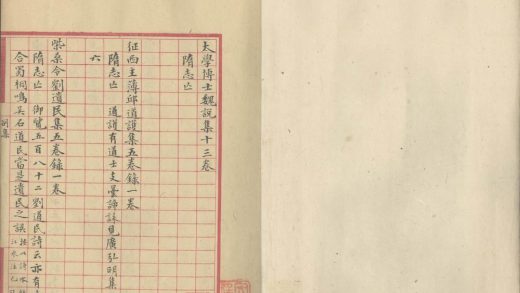 太學博士魏說集十三卷
隋志亡
征西主薄邱道護集五卷錄一卷
隋志亡 道護有道士支曇諦誄見廣弘明集
六
柴桑令劉遺民集五卷錄一卷
隋志亡 御覽五百八十二劉道民詩云亦有
合蜀桐鳴吳石道民當是遺民之誤